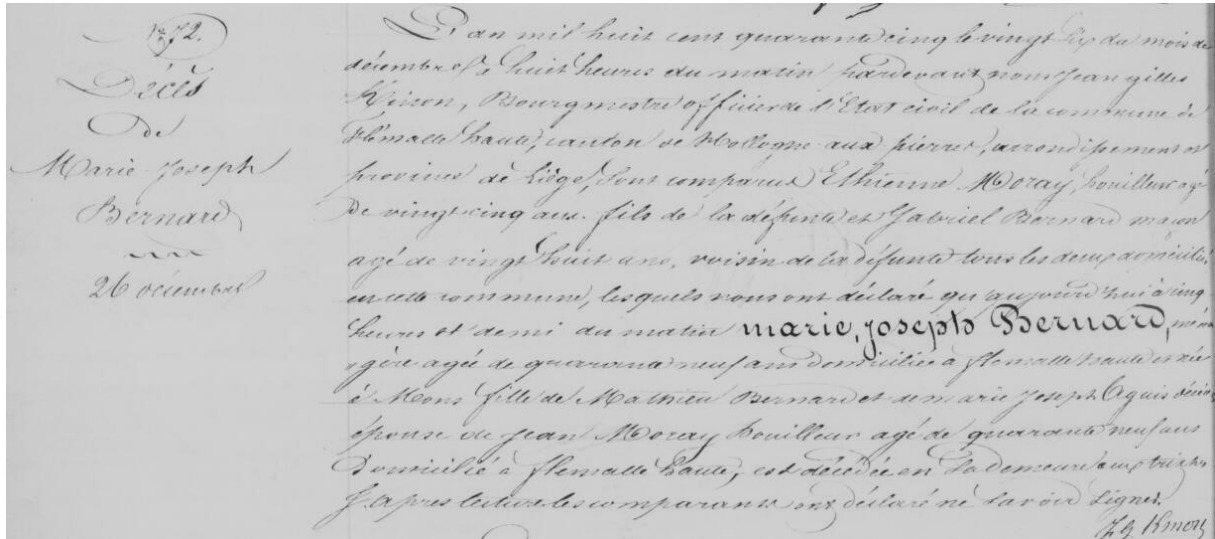 N° 72.
Décès
de
Marie Joseph
Bernard
26 décembre
L'an mil huit cent quarante cinq le vingt six du mois de
décembre à huit heures du matin pardevant nous Jean gilles
Kinon, Bourgmestre officier de l'Etat civil de la commune de
flémalle haute, canton de Hollogne aux pierres, arrondissement et
province de Liège, Sont comparus Ethienne Moray, houilleur agé
De vingt cinq ans. fils de la défunte et Gabriel Bernard maçon
agé de vingt huit ans, voisin de la défunte tous les deux domiciliés
en cette commune, lesquels nous ont déclaré qu'aujourd'hui à cinq
heures et demi du matin marie, joseph Bernard, ména
gère agée de quarante neuf ans domiciliée à flemalle haute et née
à Mons fille de Mathieu Bernard et de marie joseph
épouse de Jean Moray houilleur agé de quarante neuf ans
Domicilié à flemalle haute, est décédée en sa demeure aux
après lecture les comparants ont déclaré ne savoir signer.
J G Kinon